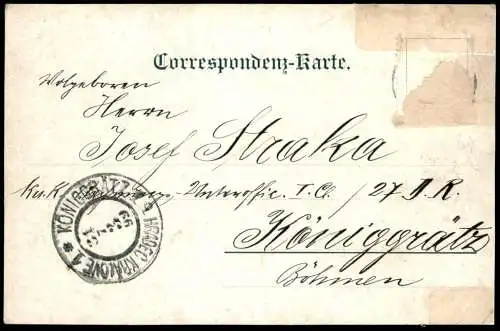 Correspondenz-Karte.
Wolgeboren
Herrn
Josef Straka
k.u.k. Unteroffic. I. C. / 27 I. R.
Königgrätz
Böhmen
KÖNIGGRÄTZ 1 * HRADEC KRÁLOVÉ 1 *